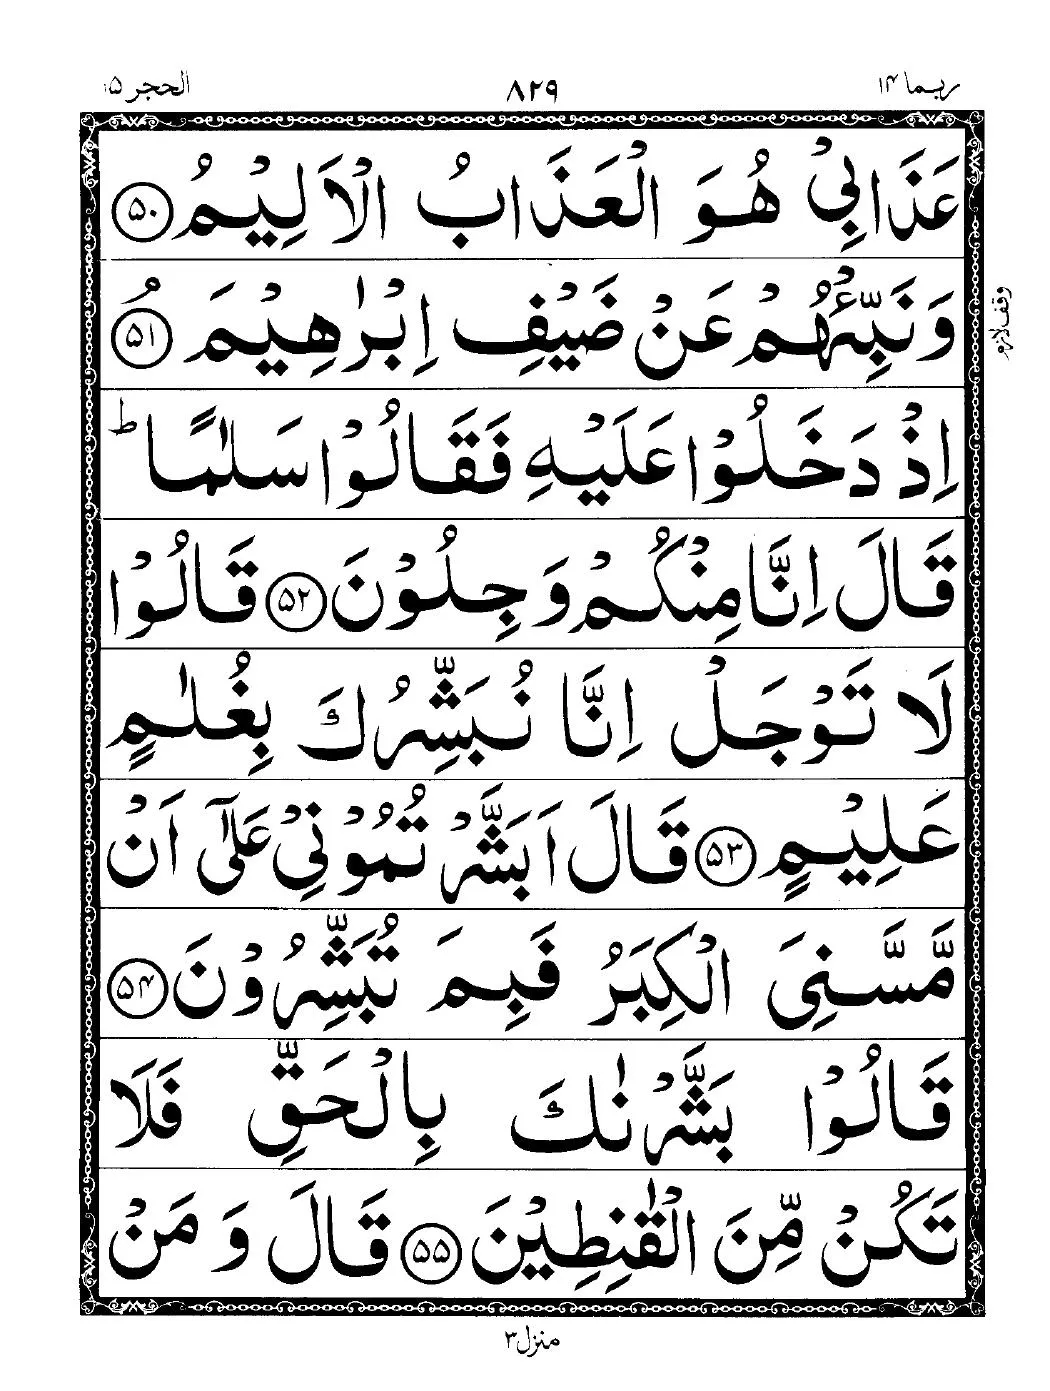 ربما ۱۴
۸۲۹
الحجر ۱۵
عَذَابِيْ هُوَ الْعَذَابُ الْاَلِيْمُ ۵۰
وَنَبِّئْهُمْ عَنْ ضَيْفِ اِبْرٰهِيْمَ ۘ ۵۱
وقف لازم
اِذْ دَخَلُوْا عَلَيْهِ فَقَالُوْا سَلٰمًا ؕ
قَالَ اِنَّا مِنْكُمْ وَجِلُوْنَ ۵۲ قَالُوْا
لَا تَوْجَلْ اِنَّا نُبَشِّرُكَ بِغُلٰمٍ
عَلِيْمٍ ۵۳ قَالَ اَبَشَّرْتُمُوْنِيْ عَلٰۤى اَنْ
مَّسَّنِىَ الْكِبَرُ فَبِمَ تُبَشِّرُوْنَ ۵۴
قَالُوْا بَشَّرْنٰكَ بِالْحَقِّ فَلَا
تَكُنْ مِّنَ الْقٰنِطِيْنَ ۵۵ قَالَ وَ مَنْ
منزل ۳